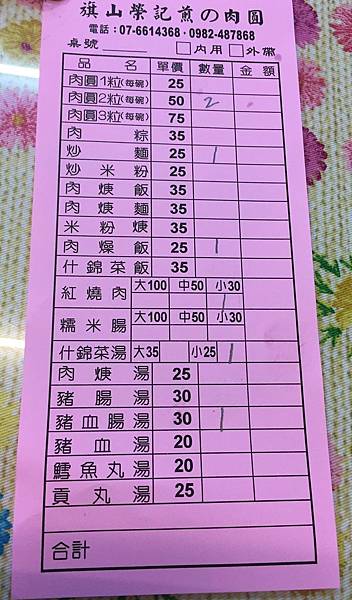 旗山榮記煎の肉圓
電話：07-6614368・0982-487868
桌號 □內用 □外帶
品名 單價 數量 金額
肉圓1粒(每碗) 25
肉圓2粒(每碗) 50 2
肉圓3粒(每碗) 75
肉粽 35
炒麵 25 1
炒米粉 25
肉焿飯 35
肉焿麵 35
米粉焿 35
肉燥飯 25 1
什錦菜飯 35
紅燒肉 大100 中50 小30 1
糯米腸 大100 中50 小30
什錦菜湯 大35 小25 1
肉焿湯 25
豬腸湯 30
豬血腸湯 30 1
豬血湯 20
鱈魚丸湯 20
貢丸湯 25
合計